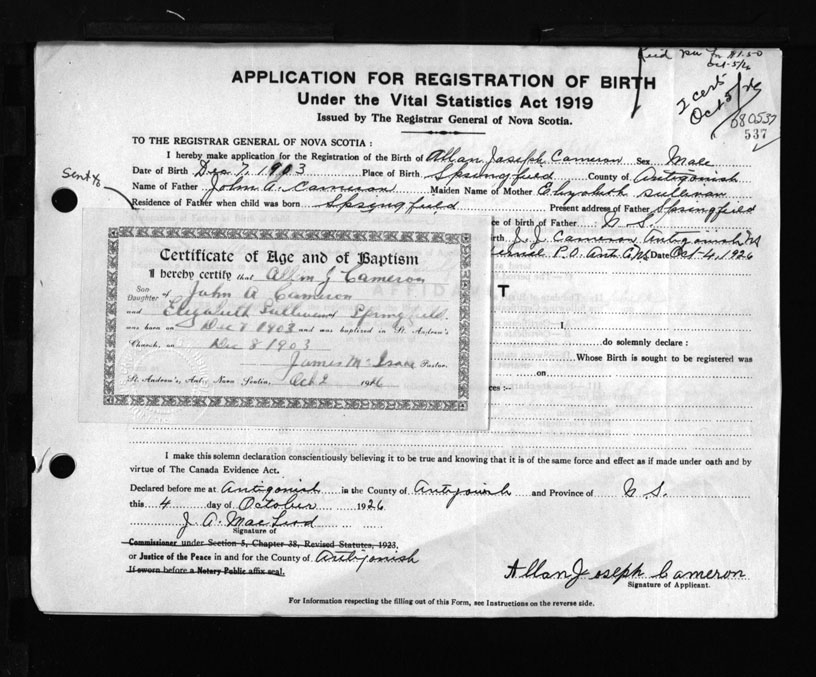 Oct 5/26
2 certs
Oct 5/26
680537
537
APPLICATION FOR REGISTRATION OF BIRTH
Under the Vital Statistics Act 1919
Issued by The Registrar General of Nova Scotia.
TO THE REGISTRAR GENERAL OF NOVA SCOTIA :
I hereby make application for the Registration of the Birth of Allan Joseph Cameron Sex Male
Date of Birth Dec 7, 1903 Place of Birth Springfield County of Antigonish
Name of Father John A. Cameron Maiden Name of Mother Elizabeth Sullivan
Residence of Father when child was born Springfield Present address of Father Springfield
ce of birth of Father N S.
rth J. J. Cameron Antigonish NS
P.O. Ant. Co NS Date Oct-4, 1926
Sent to
Certificate of Age and of Baptism
I hereby certify that Allan J Cameron
Son
Daughter of John A Cameron
and Elizabeth Sullivan Springfield
was born on Dec 7 1903 and was baptized in St. Andrew's
Church, on Dec 8 1903
James McIsaac Pastor.
St. Andrew's, Ant., Nova Scotia, Oct 2 1926
T
I,
do solemnly declare :
Whose Birth is sought to be registered was
on
ces :-
I make this solemn declaration conscientiously believing it to be true and knowing that it is of the same force and effect as if made under oath and by
virtue of The Canada Evidence Act.
Declared before me at Antigonish in the County of Antigonish and Province of N S.
this 4 day of October 1926
J. A. MacLeod
Signature of
Commissioner under Section 5, Chapter 38, Revised Statutes, 1923,
or Justice of the Peace in and for the County of Antigonish
If sworn before a Notary Public affix seal.
Allan Joseph Cameron
Signature of Applicant.
For Information respecting the filling out of this Form, see Instructions on the reverse side.